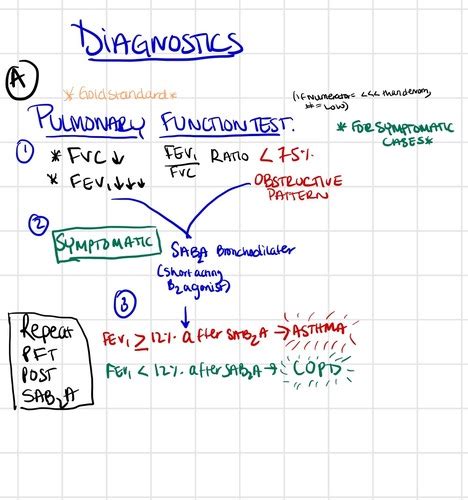 DIAGNOSTICS
A
* Gold standard *
(if numerator <<< than denom, ** = Low)
PULMONARY FUNCTION TEST.
* FOR SYMPTOMATIC
CASES *
1
* FVC ↓
FEV1
FVC
RATIO < 75%
* FEV1 ↓↓↓
OBSTRUCTIVE
PATTERN
2
SYMPTOMATIC
SABA Bronchodilater
(short acting
B2 agonist)
3
Repeat
PFT
POST
SAB2A
FEV1 ≥ 12% after SAB2A → ASTHMA
FEV1 < 12% after SAB2A → COPD